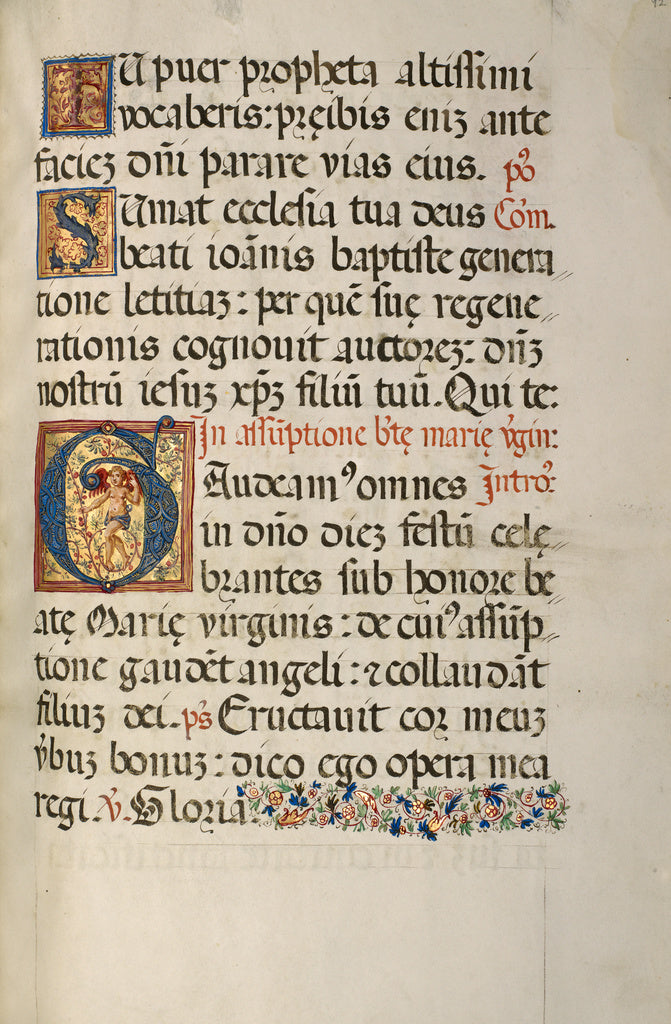 Tu puer propheta altissimi
vocaberis: pręibis eniʒ ante
facieʒ dn̄i parare vias eius. pꝰo
Sumat ecclesia tua deus Com̄.
beati ioānis baptiste genera〃
tione letitiaʒ: per quē suę regene〃
rationis cognouit auctoreʒ: dn̄ʒ
nostrū iesuʒ xp̄ʒ filiū tuū. Qui te:
In assūptione bt̄ę marię v̄gin:
Gaudeamꝰ omnes Introꝰ:
in dn̄o dieʒ festū celę〃
brantes sub honore be〃
atę Marię virginis: de cuiꝰ assūp〃
tione gaudēt angeli: ⁊ collaudāt
filiuʒ dei. ps̄ Eructauit cor meuʒ
v̄buʒ bonuʒ: dico ego opera mea
regi. v̄. Gloria.